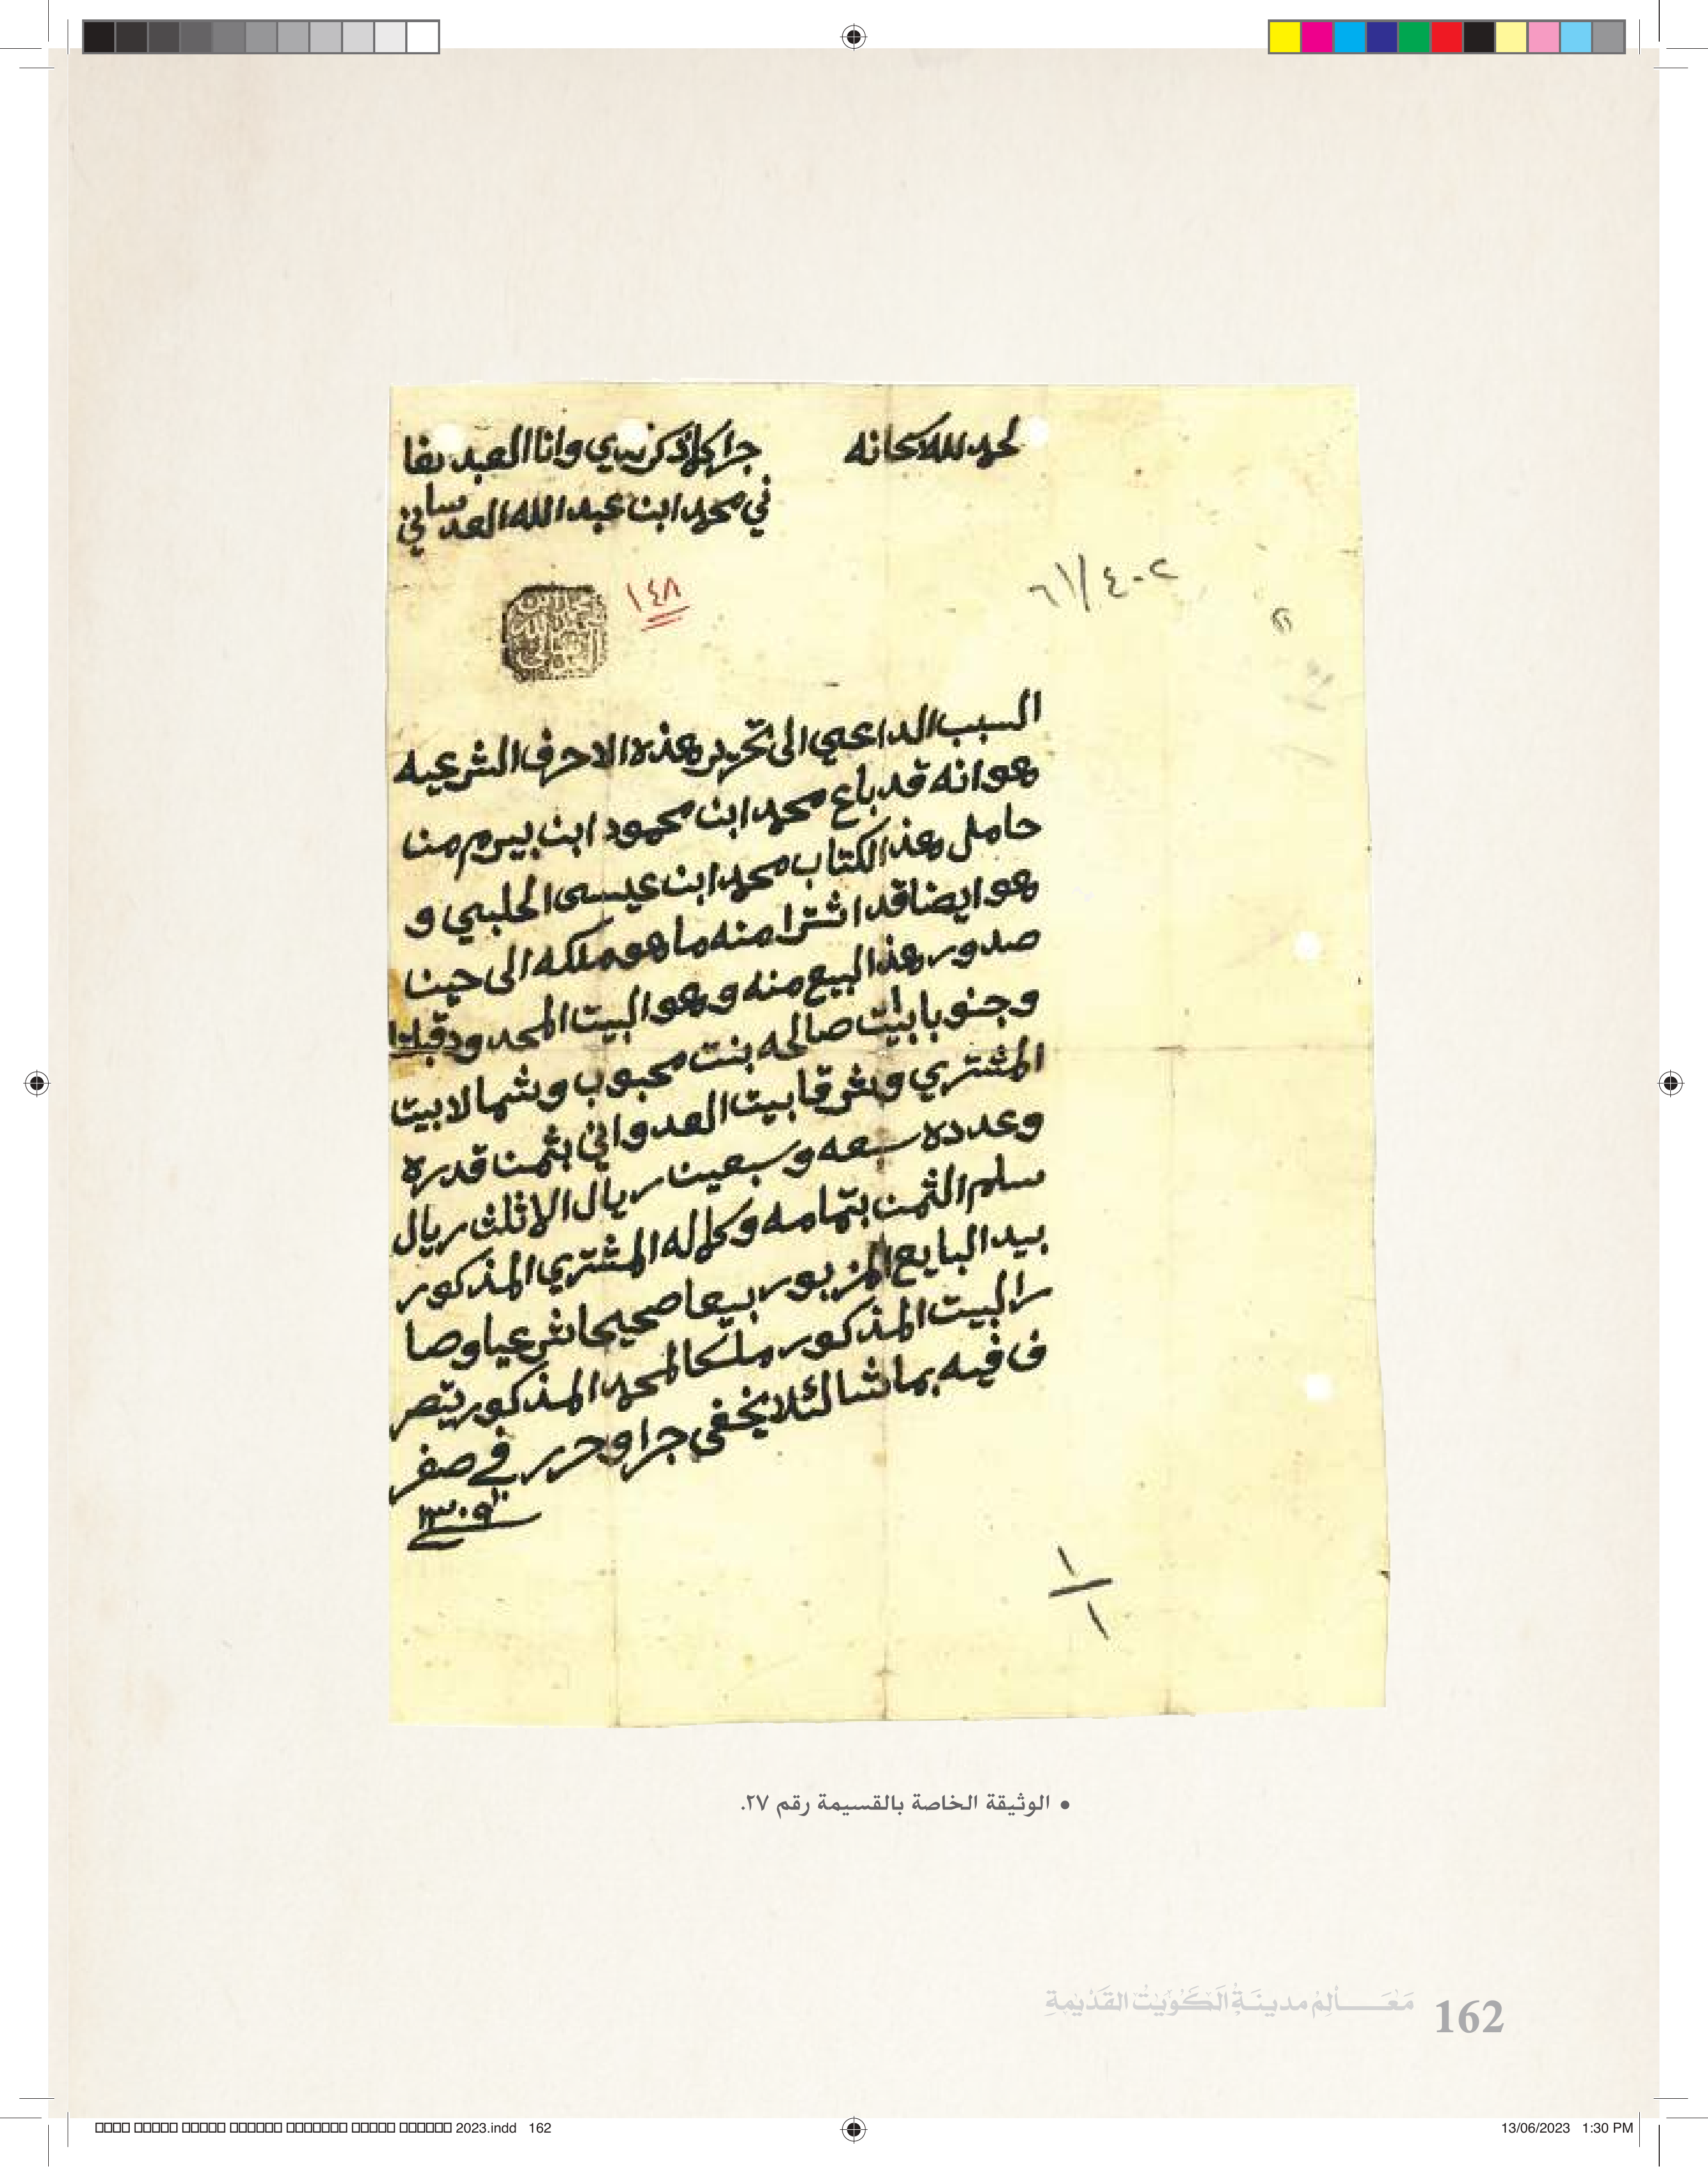 لحمد لله سبحانه
جرا كلاذكر لدي وانا العبد لفا
ني محمد ابن عبد الله العدساني
١٤٨
٢-٤/٦١
السبب الداعي الى تحرير هذه الاحرف الشرعيه
هو انه قد باع محمد ابن محمود ابن بيرم من
حامل هذ الكتاب محمد ابن عيسى الحلبي و
هو ايضا قد اشترا منه ما هو ملكه الى حين
صدور هذ البيع منه وهو البيت المحدود قبلتا
وجنوبا بيت صالحه بنت محبوب وشمالا بيت
المشتري وشرقا بيت العدواني بثمن قدره
وعدده سبعه وسبعين ريال الا ثلث ريال
سلم الثمن بتمامه وكماله المشتري المذكور
بيد البايع المزبور بيعا صحيحا شرعيا وصا
ر البيت المذكور ملكا لمحمد المذكور يتصر
ف فيه بما شا لئلا يخفى جرا وحرر في صفر
١٣٠٩
١
١
• الوثيقة الخاصة بالقسيمة رقم ٢٧.
مَعَـــالِمُ مدينَةِ الكُوَيْتِ القَدِيمَةِ 162
2023.indd 162
13/06/2023 1:30 PM